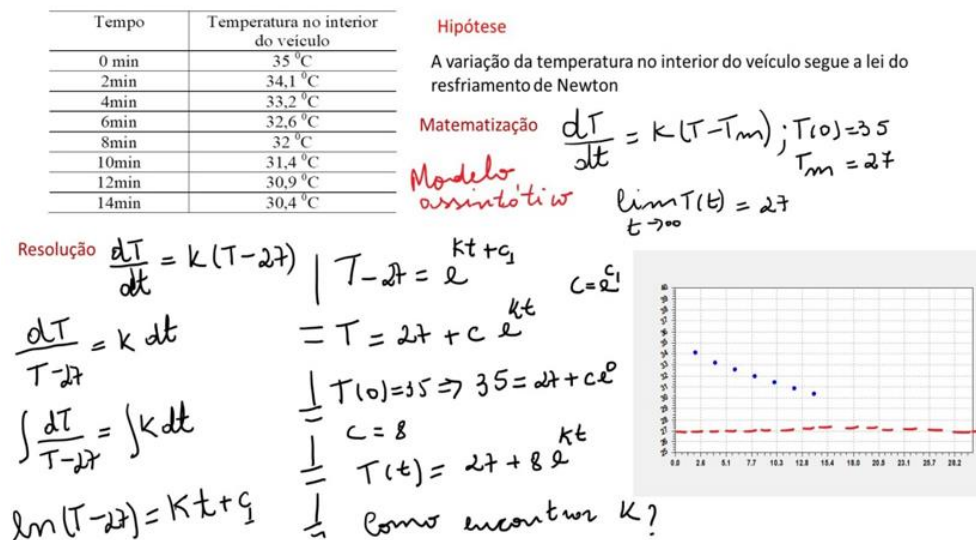 Tempo Temperatura no interior do veículo
0 min 35 °C
2min 34,1 °C
4min 33,2 °C
6min 32,6 °C
8min 32 °C
10min 31,4 °C
12min 30,9 °C
14min 30,4 °C
Hipótese
A variação da temperatura no interior do veículo segue a lei do
resfriamento de Newton
Matematização dT/dt = K(T-Tm); T(0)=35
Tm = 27
Modelo
assintótico
lim T(t) = 27
t→∞
Resolução dT/dt = K(T-27)
dT/(T-27) = K dt
∫ dT/(T-27) = ∫ K dt
ln(T-27) = Kt+c₁
T-27 = e^(Kt+c₁)
c=e^c₁
= T = 27 + c e^(Kt)
T(0)=35 => 35=27+ce⁰
c = 8
T(t) = 27+8e^(Kt)
Como encontrar K?
40
39
38
37
36
35
34
33
32
31
30
29
28
27
26
25
0.0 2.6 5.1 7.7 10.3 12.8 15.4 18.0 20.5 23.1 25.7 28.2